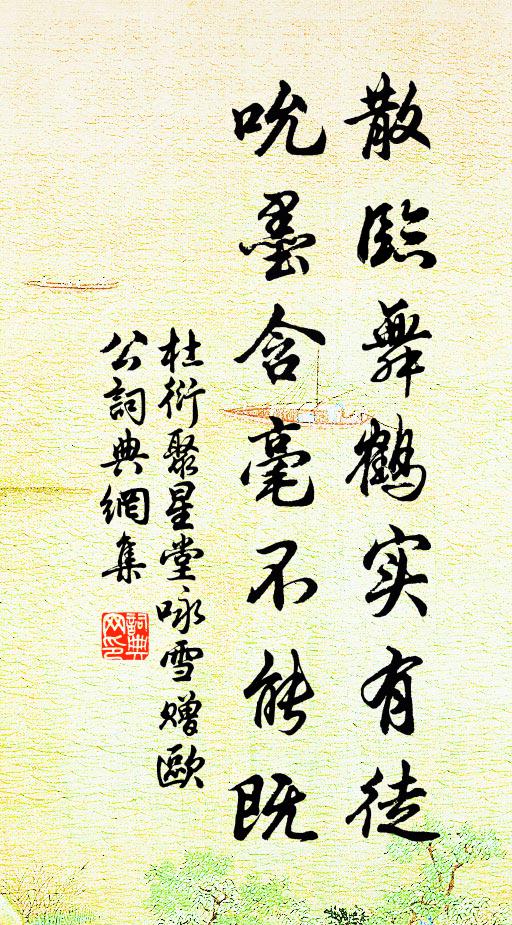 散臨舞鶴实有徒
吮墨含毫不能既
杜衍聚星堂咏雪赠歐
公詞典網集
詞典网印